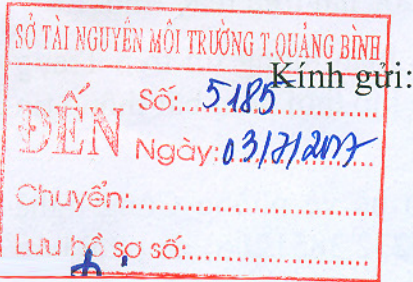 SỞ TÀI NGUYÊN MÔI TRƯỜNG T.QUẢNG BÌNH
Kính gửi:
ĐẾN
Số: 5185
Ngày: 03/7/2017
Chuyển:
Lưu hồ sơ số: